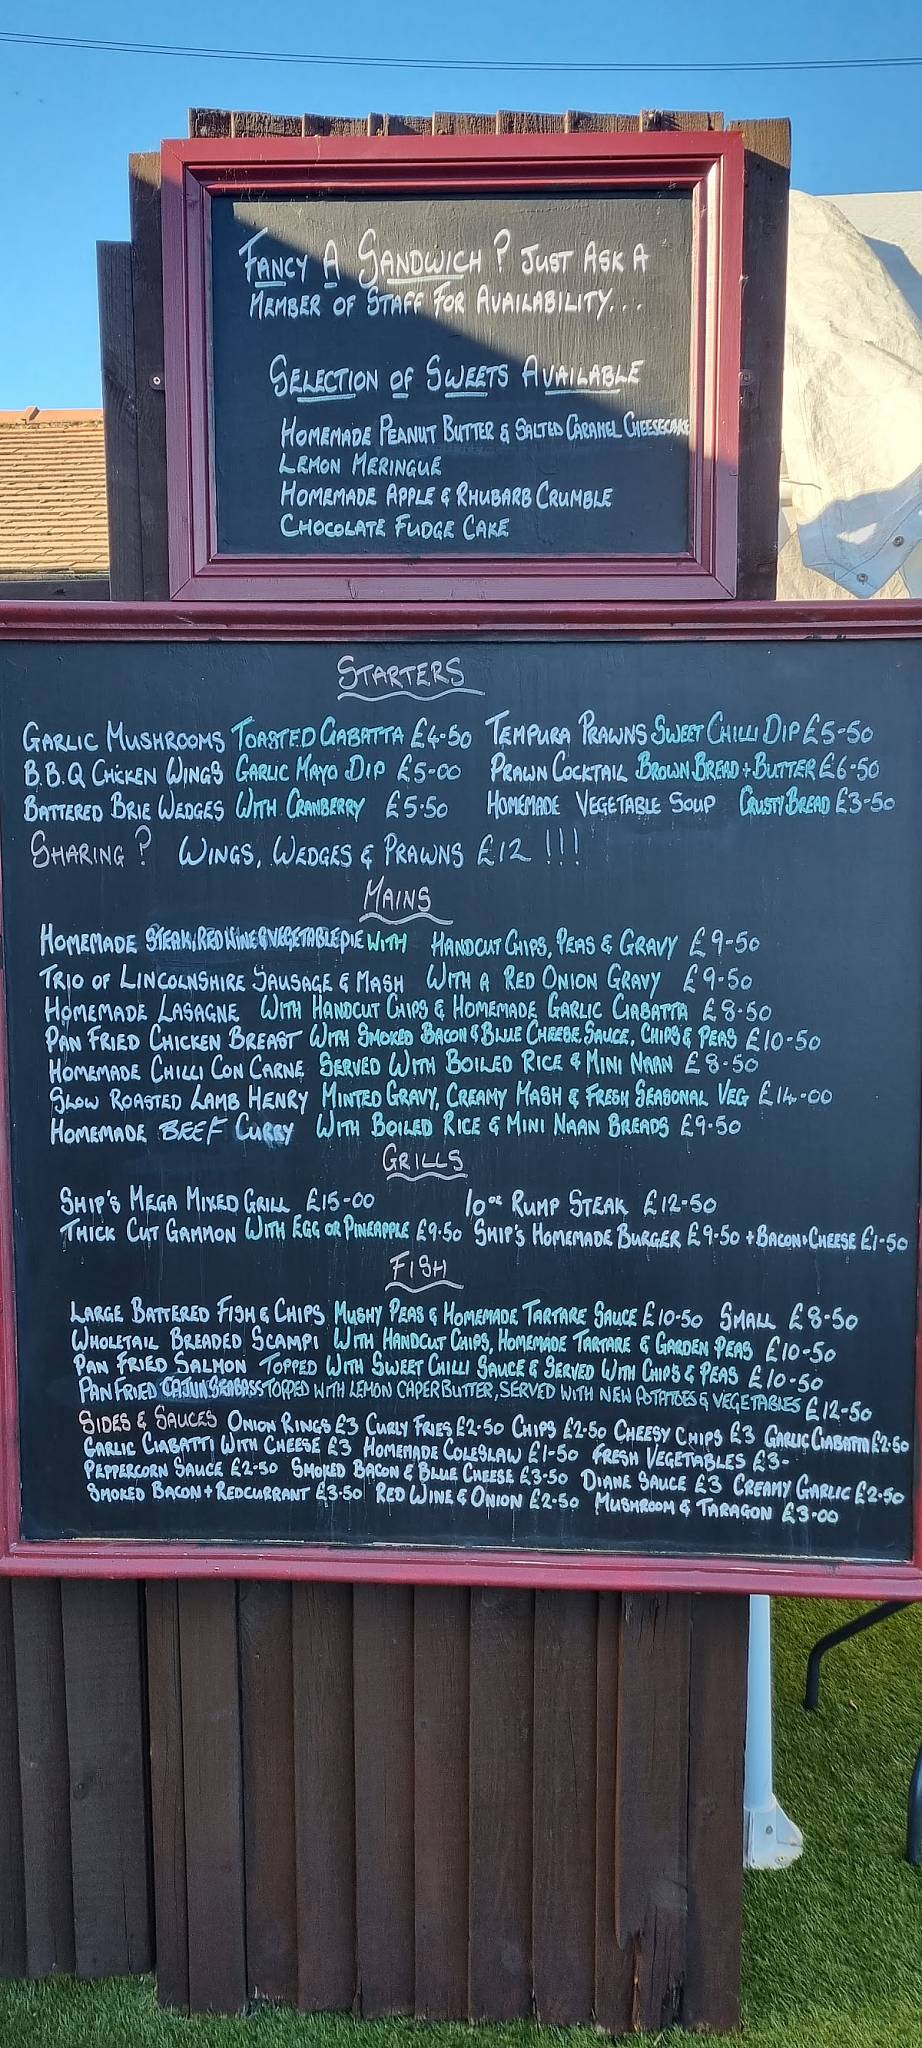 FANCY A SANDWICH? JUST ASK A
MEMBER OF STAFF FOR AVAILABILITY...
SELECTION OF SWEETS AVAILABLE
HOMEMADE PEANUT BUTTER & SALTED CARAMEL CHEESECAKE
LEMON MERINGUE
HOMEMADE APPLE & RHUBARB CRUMBLE
CHOCOLATE FUDGE CAKE
STARTERS
GARLIC MUSHROOMS TOASTED CIABATTA £4-50 TEMPURA PRAWNS SWEET CHILLI DIP £5-50
B.B.Q CHICKEN WINGS GARLIC MAYO DIP £5-00 PRAWN COCKTAIL BROWN BREAD + BUTTER £6-50
BATTERED BRIE WEDGES WITH CRANBERRY £5-50 HOMEMADE VEGETABLE SOUP CRUSTY BREAD £3-50
SHARING? WINGS, WEDGES & PRAWNS £12 !!!
MAINS
HOMEMADE STEAK, RED WINE & VEGETABLE PIE WITH HANDCUT CHIPS, PEAS & GRAVY £9-50
TRIO OF LINCOLNSHIRE SAUSAGE & MASH WITH A RED ONION GRAVY £9-50
HOMEMADE LASAGNE WITH HANDCUT CHIPS & HOMEMADE GARLIC CIABATTA £8-50
PAN FRIED CHICKEN BREAST WITH SMOKED BACON & BLUE CHEESE SAUCE, CHIPS & PEAS £10-50
HOMEMADE CHILLI CON CARNE SERVED WITH BOILED RICE & MINI NAAN £8-50
SLOW ROASTED LAMB HENRY MINTED GRAVY, CREAMY MASH & FRESH SEASONAL VEG £14-00
HOMEMADE BEEF CURRY WITH BOILED RICE & MINI NAAN BREADS £9-50
GRILLS
SHIP'S MEGA MIXED GRILL £15-00 10oz RUMP STEAK £12-50
THICK CUT GAMMON WITH EGG OR PINEAPPLE £9-50 SHIP'S HOMEMADE BURGER £9-50 + BACON + CHEESE £1-50
FISH
LARGE BATTERED FISH & CHIPS MUSHY PEAS & HOMEMADE TARTARE SAUCE £10-50 SMALL £8-50
WHOLETAIL BREADED SCAMPI WITH HANDCUT CHIPS, HOMEMADE TARTARE & GARDEN PEAS £10-50
PAN FRIED SALMON TOPPED WITH SWEET CHILLI SAUCE & SERVED WITH CHIPS & PEAS £10-50
PAN FRIED CAJUN SEABASS TOPPED WITH LEMON CAPER BUTTER, SERVED WITH NEW POTATOES & VEGETABLES £12-50
SIDES & SAUCES ONION RINGS £3 CURLY FRIES £2-50 CHIPS £2-50 CHEESY CHIPS £3 GARLIC CIABATTA £2-50
GARLIC CIABATTI WITH CHEESE £3 HOMEMADE COLESLAW £1-50 FRESH VEGETABLES £3-
PEPPERCORN SAUCE £2-50 SMOKED BACON & BLUE CHEESE £3-50 DIANE SAUCE £3 CREAMY GARLIC £2-50
SMOKED BACON + REDCURRANT £3-50 RED WINE & ONION £2-50 MUSHROOM & TARAGON £3-00